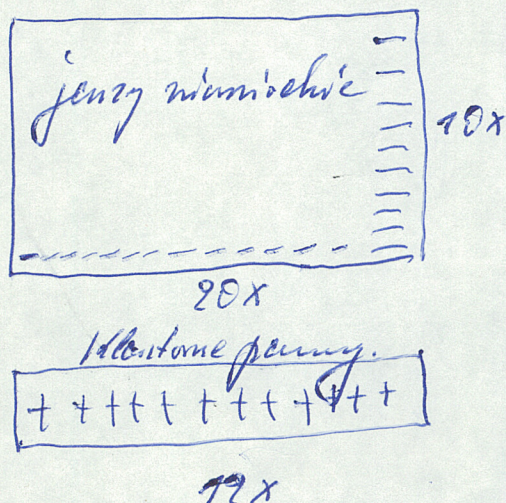 jeńcy niemieckie
10x
20x
Klasztorne panny.
12x